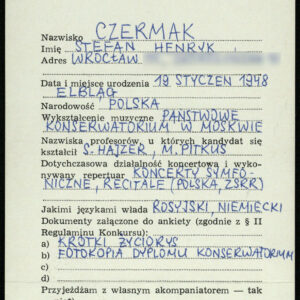 Nazwisko CZERMAK
Imię STEFAN HENRYK
Adres WROCŁAW
Data i miejsce urodzenia 19 STYCZEŃ 1948
ELBLĄG
Narodowość POLSKA
Wykształcenie muzyczne PAŃSTWOWE
KONSERWATORIUM W MOSKWIE
Nazwiska profesorów, u których kandydat się
kształcił S. HAJZER, M. PITKUS
Dotychczasowa działalność koncertowa i wyko-
nywany repertuar KONCERTY SYMFO-
NICZNE, RECITALE (POLSKA, ZSRR)
Jakimi językami włada ROSYJSKI, NIEMIECKI
Dokumenty załączone do ankiety (zgodnie z § II
Regulaminu Konkursu):
a) KRÓTKI ŻYCIORYS
b) FOTOKOPIA DYPLOMU KONSERWATORIUM
c)
d)
Przyjeżdżam z własnym akompaniatorem — tak